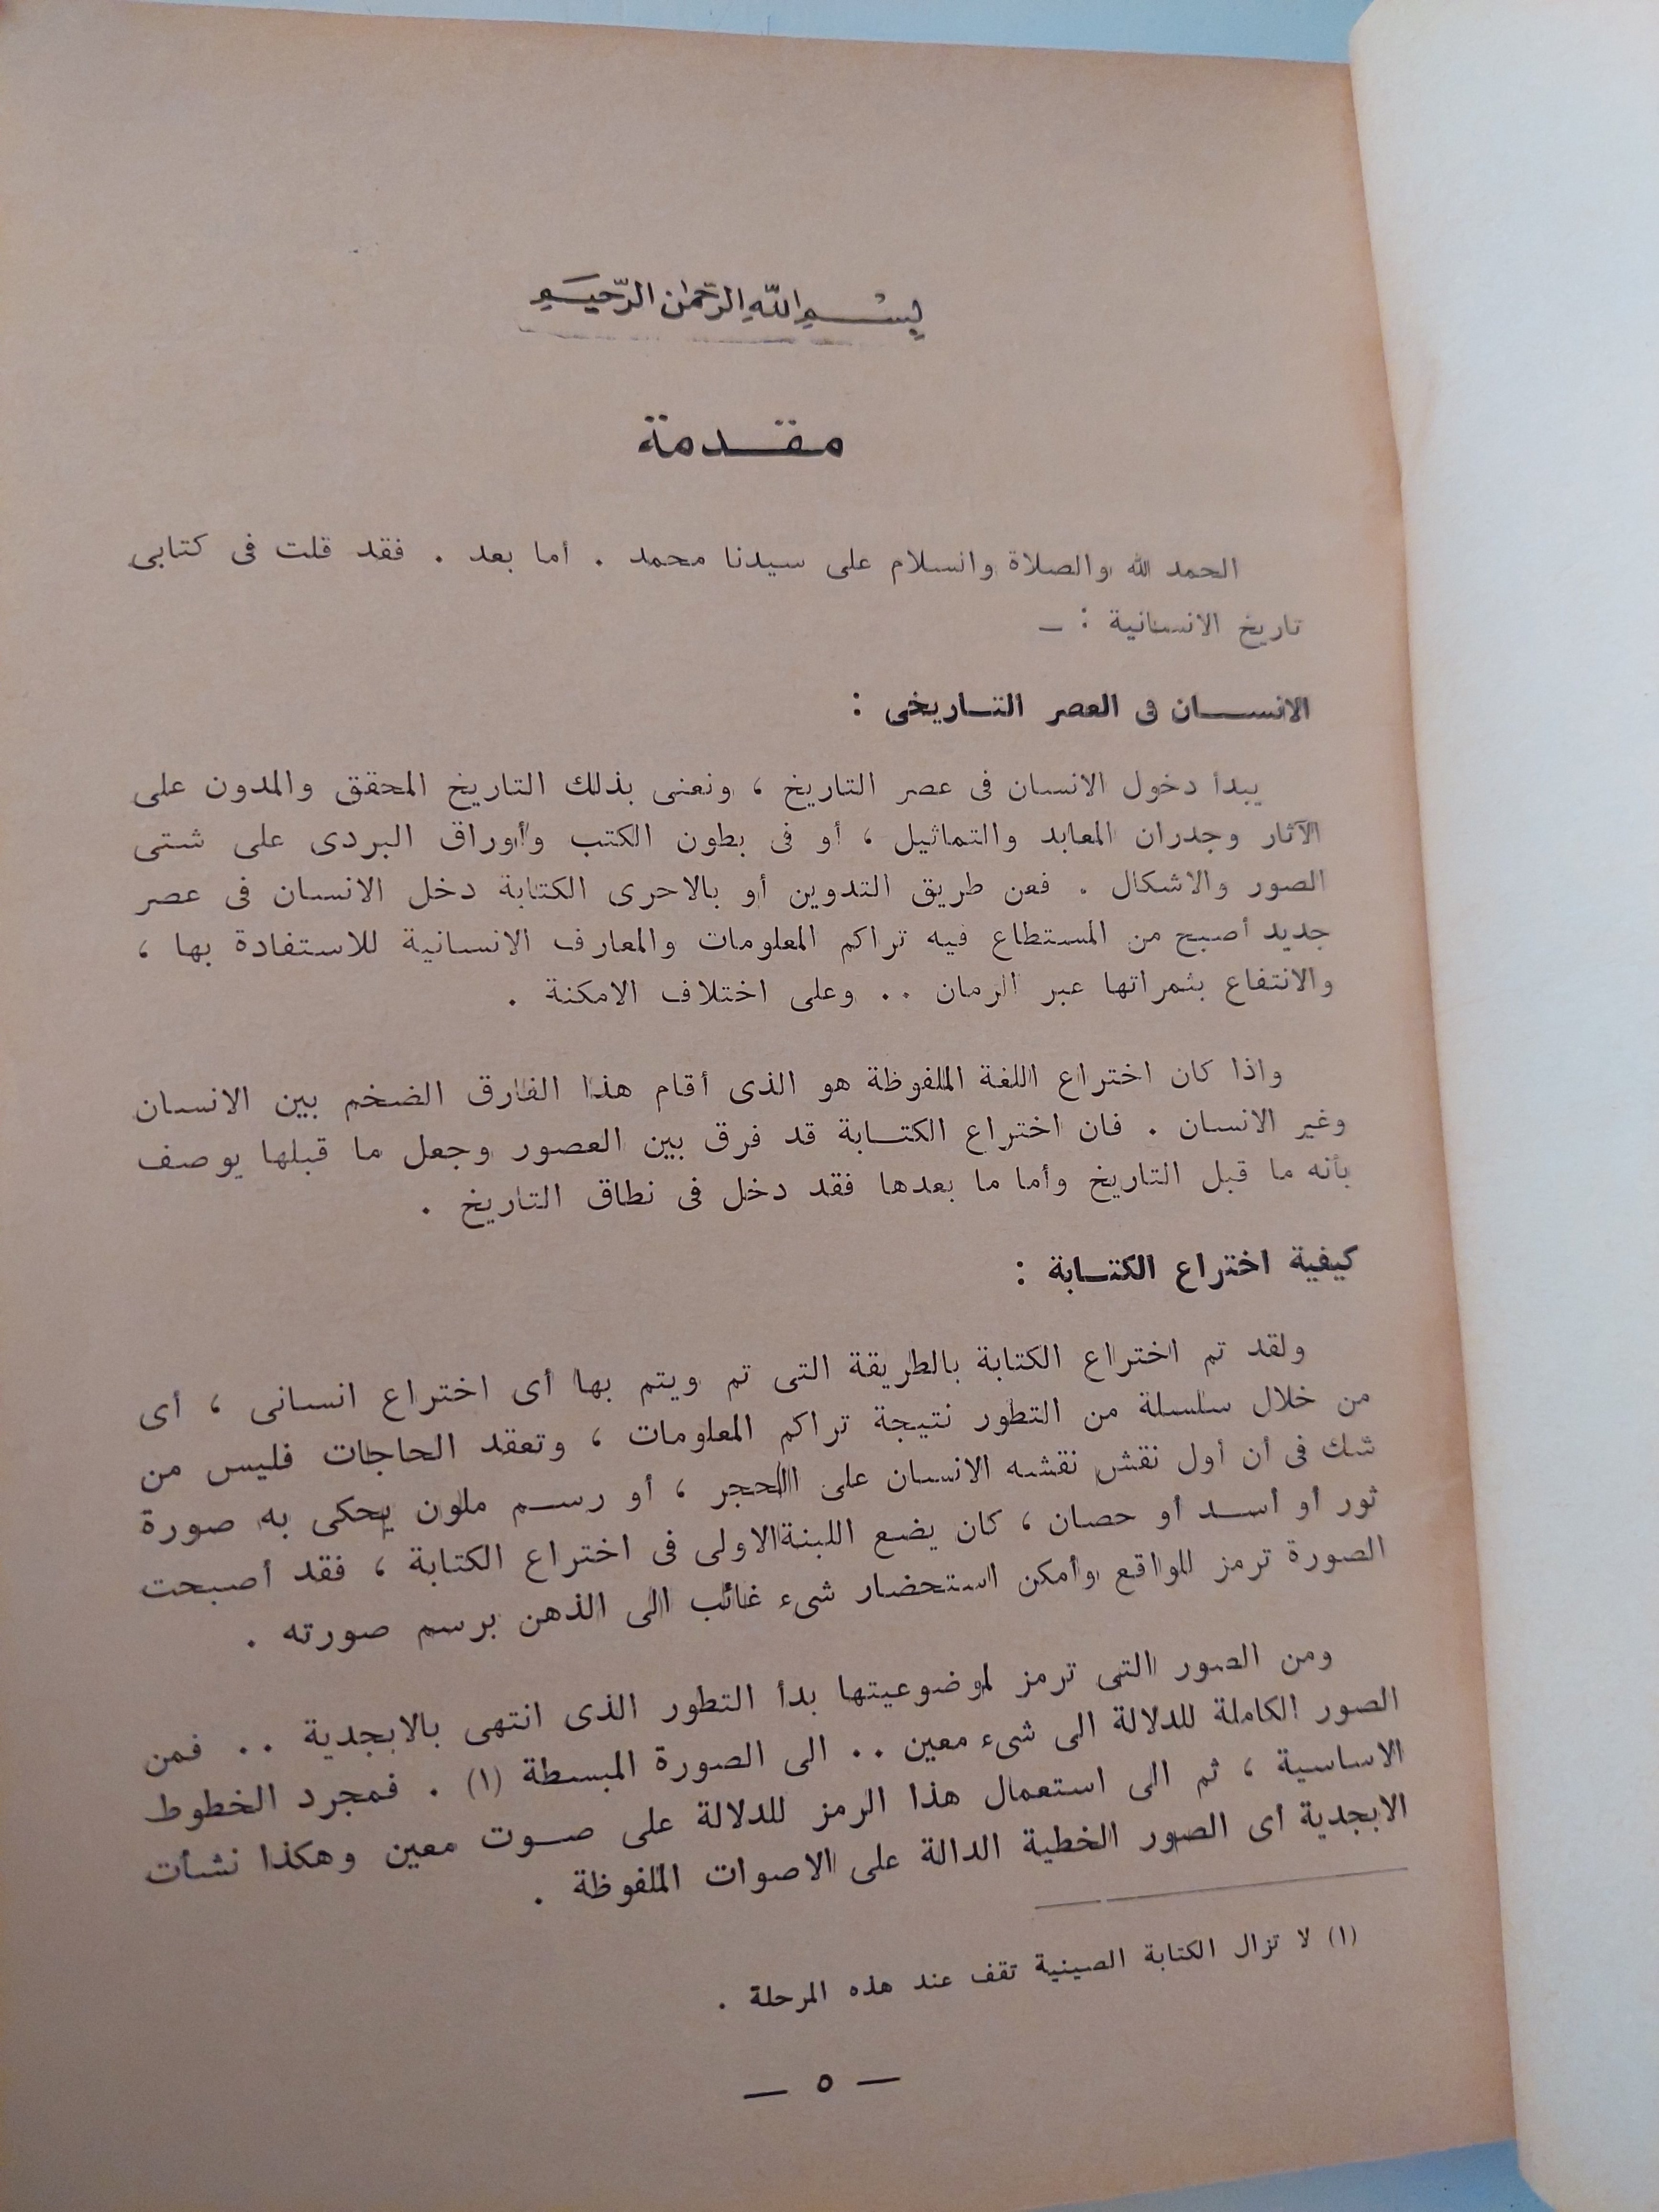 بِسْمِ اللَّهِ الرَّحْمَٰنِ الرَّحِيمِ
مقدمة
الحمد لله والصلاة والسلام على سيدنا محمد . أما بعد . فقد قلت فى كتابى
تاريخ الانسانية : –
الانسان فى العصر التاريخى :
يبدأ دخول الانسان فى عصر التاريخ ، ونعنى بذلك التاريخ المحقق والمدون على
الآثار وجدران المعابد والتماثيل ، أو فى بطون الكتب وأوراق البردى على شتى
الصور والاشكال . فعن طريق التدوين أو بالاحرى الكتابة دخل الانسان فى عصر
جديد أصبح من المستطاع فيه تراكم المعلومات والمعارف الانسانية للاستفادة بها ،
والانتفاع بثمراتها عبر الزمان .. وعلى اختلاف الامكنة .
واذا كان اختراع اللغة الملفوظة هو الذى أقام هذا الفارق الضخم بين الانسان
وغير الانسان . فان اختراع الكتابة قد فرق بين العصور وجعل ما قبلها يوصف
بأنه ما قبل التاريخ وأما ما بعدها فقد دخل فى نطاق التاريخ .
كيفية اختراع الكتابة :
ولقد تم اختراع الكتابة بالطريقة التى تم ويتم بها أى اختراع انسانى ، أى
من خلال سلسلة من التطور نتيجة تراكم المعلومات ، وتعقد الحاجات فليس من
شك فى أن أول نقش نقشه الانسان على الحجر ، أو رسم ملون يحكى به صورة
ثور أو أسد أو حصان ، كان يضع اللبنة الاولى فى اختراع الكتابة ، فقد أصبحت
الصورة ترمز للواقع وأمكن استحضار شىء غائب الى الذهن برسم صورته .
ومن الصور التى ترمز لموضوعيتها بدأ التطور الذى انتهى بالابجدية .. فمن
الصور الكاملة للدلالة الى شىء معين .. الى الصورة المبسطة (١) . فمجرد الخطوط
الاساسية ، ثم الى استعمال هذا الرمز للدلالة على صوت معين وهكذا نشأت
الابجدية أى الصور الخطية الدالة على الاصوات الملفوظة .
(١) لا تزال الكتابة الصينية تقف عند هذه المرحلة .
– ٥ –